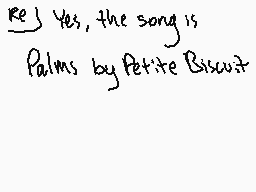 Re} Yes, the song is
Palms by Petite Biscuit